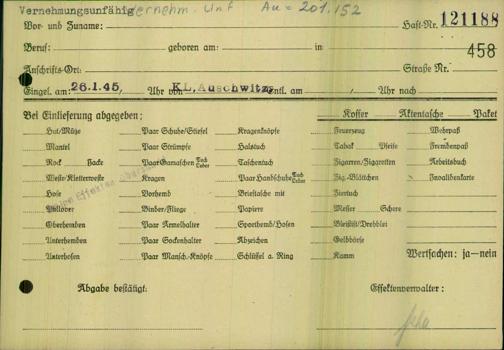 Vernehmungsunfähig Vernehm. Unf Au = 201.152
Vor- und Zuname: Haft-Nr. 121188
Beruf: geboren am: in 458
Anschrifts-Ort: Straße Nr.
Eingel. am: 26.1.45, Uhr von KL. Auschwitz Entl. am , Uhr nach
Bei Einlieferung abgegeben: Koffer Aktentasche Paket
Hut/Mütze Paar Schuhe/Stiefel Kragenknöpfe Feuerzeug Wehrpaß
Mantel Paar Strümpfe Halstuch Tabak Pfeife Fremdenpaß
Rock Jacke Paar Gamaschen Tuch Leder Taschentuch Zigarren/Zigaretten Arbeitsbuch
Weste/Kletterweste Kragen Paar Handschuhe Tuch Leder Zig.-Blättchen Invalidenkarte
Hose Vorhemd Brieftasche mit Tiertuch
Pullover Binder/Fliege Papiere Messer Schere
Oberhemden Paar Ärmelhalter Sporthemd/Hosen Bleistift/Drehblei
Unterhemden Paar Sockenhalter Abzeichen Geldbörse
Unterhosen Paar Mansch.-Knöpfe Schlüssel a. Ring Kamm Wertsachen: ja—nein
Abgabe bestätigt: Effektenverwalter: